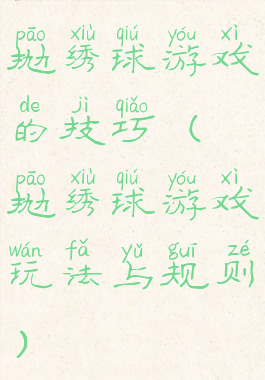 pāo xiù qiú yóu xì
抛绣球游戏
de jì qiǎo
的技巧（
pāo xiù qiú yóu xì
抛绣球游戏
wán fǎ yǔ guī zé
玩法与规则
）